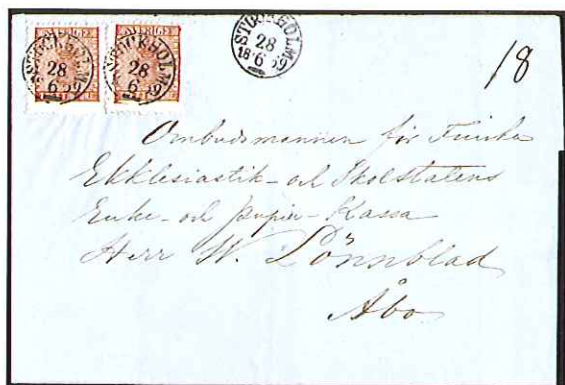 SVERIGE SVERIGE
STOCKHOLM
28
6 59
STOCKHOLM
28
6 59
STOCKHOLM
28
18 6 59
18
Ombudsmannen för Finska
Ekklesiastik- och Skolstatens
Enke- och Pupill-Kassa
Herr W. Lönnblad
Åbo